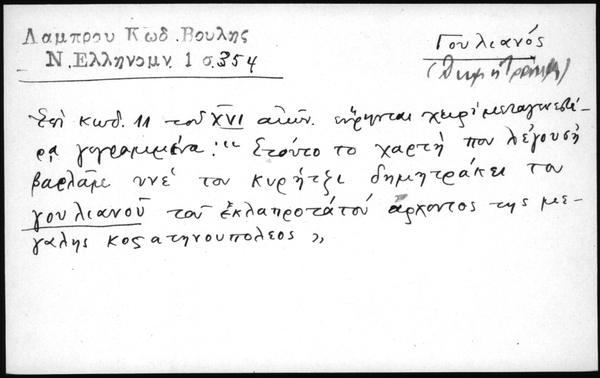 Λαμπρου Κωδ. Βουλης
Ν. Ελληνομν. 1 σ. 354
Γουλιανός
(Δημητράκης)
Ἐπὶ κωδ. 11 τοῦ XVI αἰῶν. εὕρηνται χειρὶ μεταγενεστέ-
ρᾳ γεγραμμένα: "Ετοῦτο το χαρτὴ που λέγουσῃ
βαρλάμε υνέ τον κυρήτζι δημητράκει του
γουλιανοῦ τοῦ ἐκλαπροτάτου ἄρχοντος της με-
γάλης κοσατηνουπολεος »